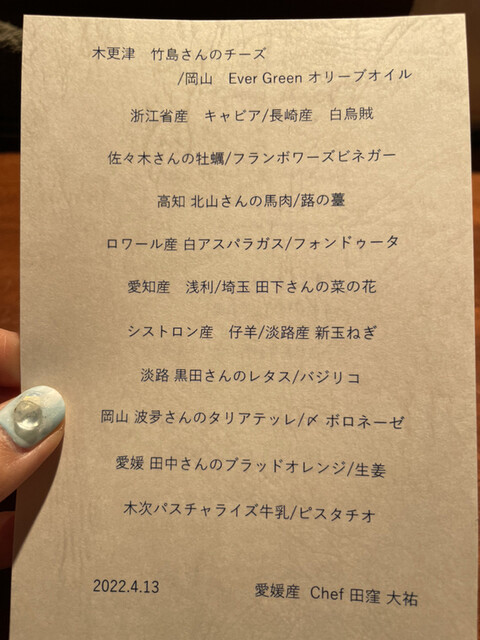 木更津　竹島さんのチーズ
/岡山　Ever Green オリーブオイル
浙江省産　キャビア/長崎産　白烏賊
佐々木さんの牡蠣/フランボワーズビネガー
高知 北山さんの馬肉/蕗の薹
ロワール産 白アスパラガス/フォンドゥータ
愛知産　浅利/埼玉 田下さんの菜の花
シストロン産　仔羊/淡路産 新玉ねぎ
淡路 黒田さんのレタス/バジリコ
岡山 波夛さんのタリアテッレ/〆 ボロネーゼ
愛媛 田中さんのブラッドオレンジ/生姜
木次パスチャライズ牛乳/ピスタチオ
2022.4.13　愛媛産 Chef 田窪 大祐